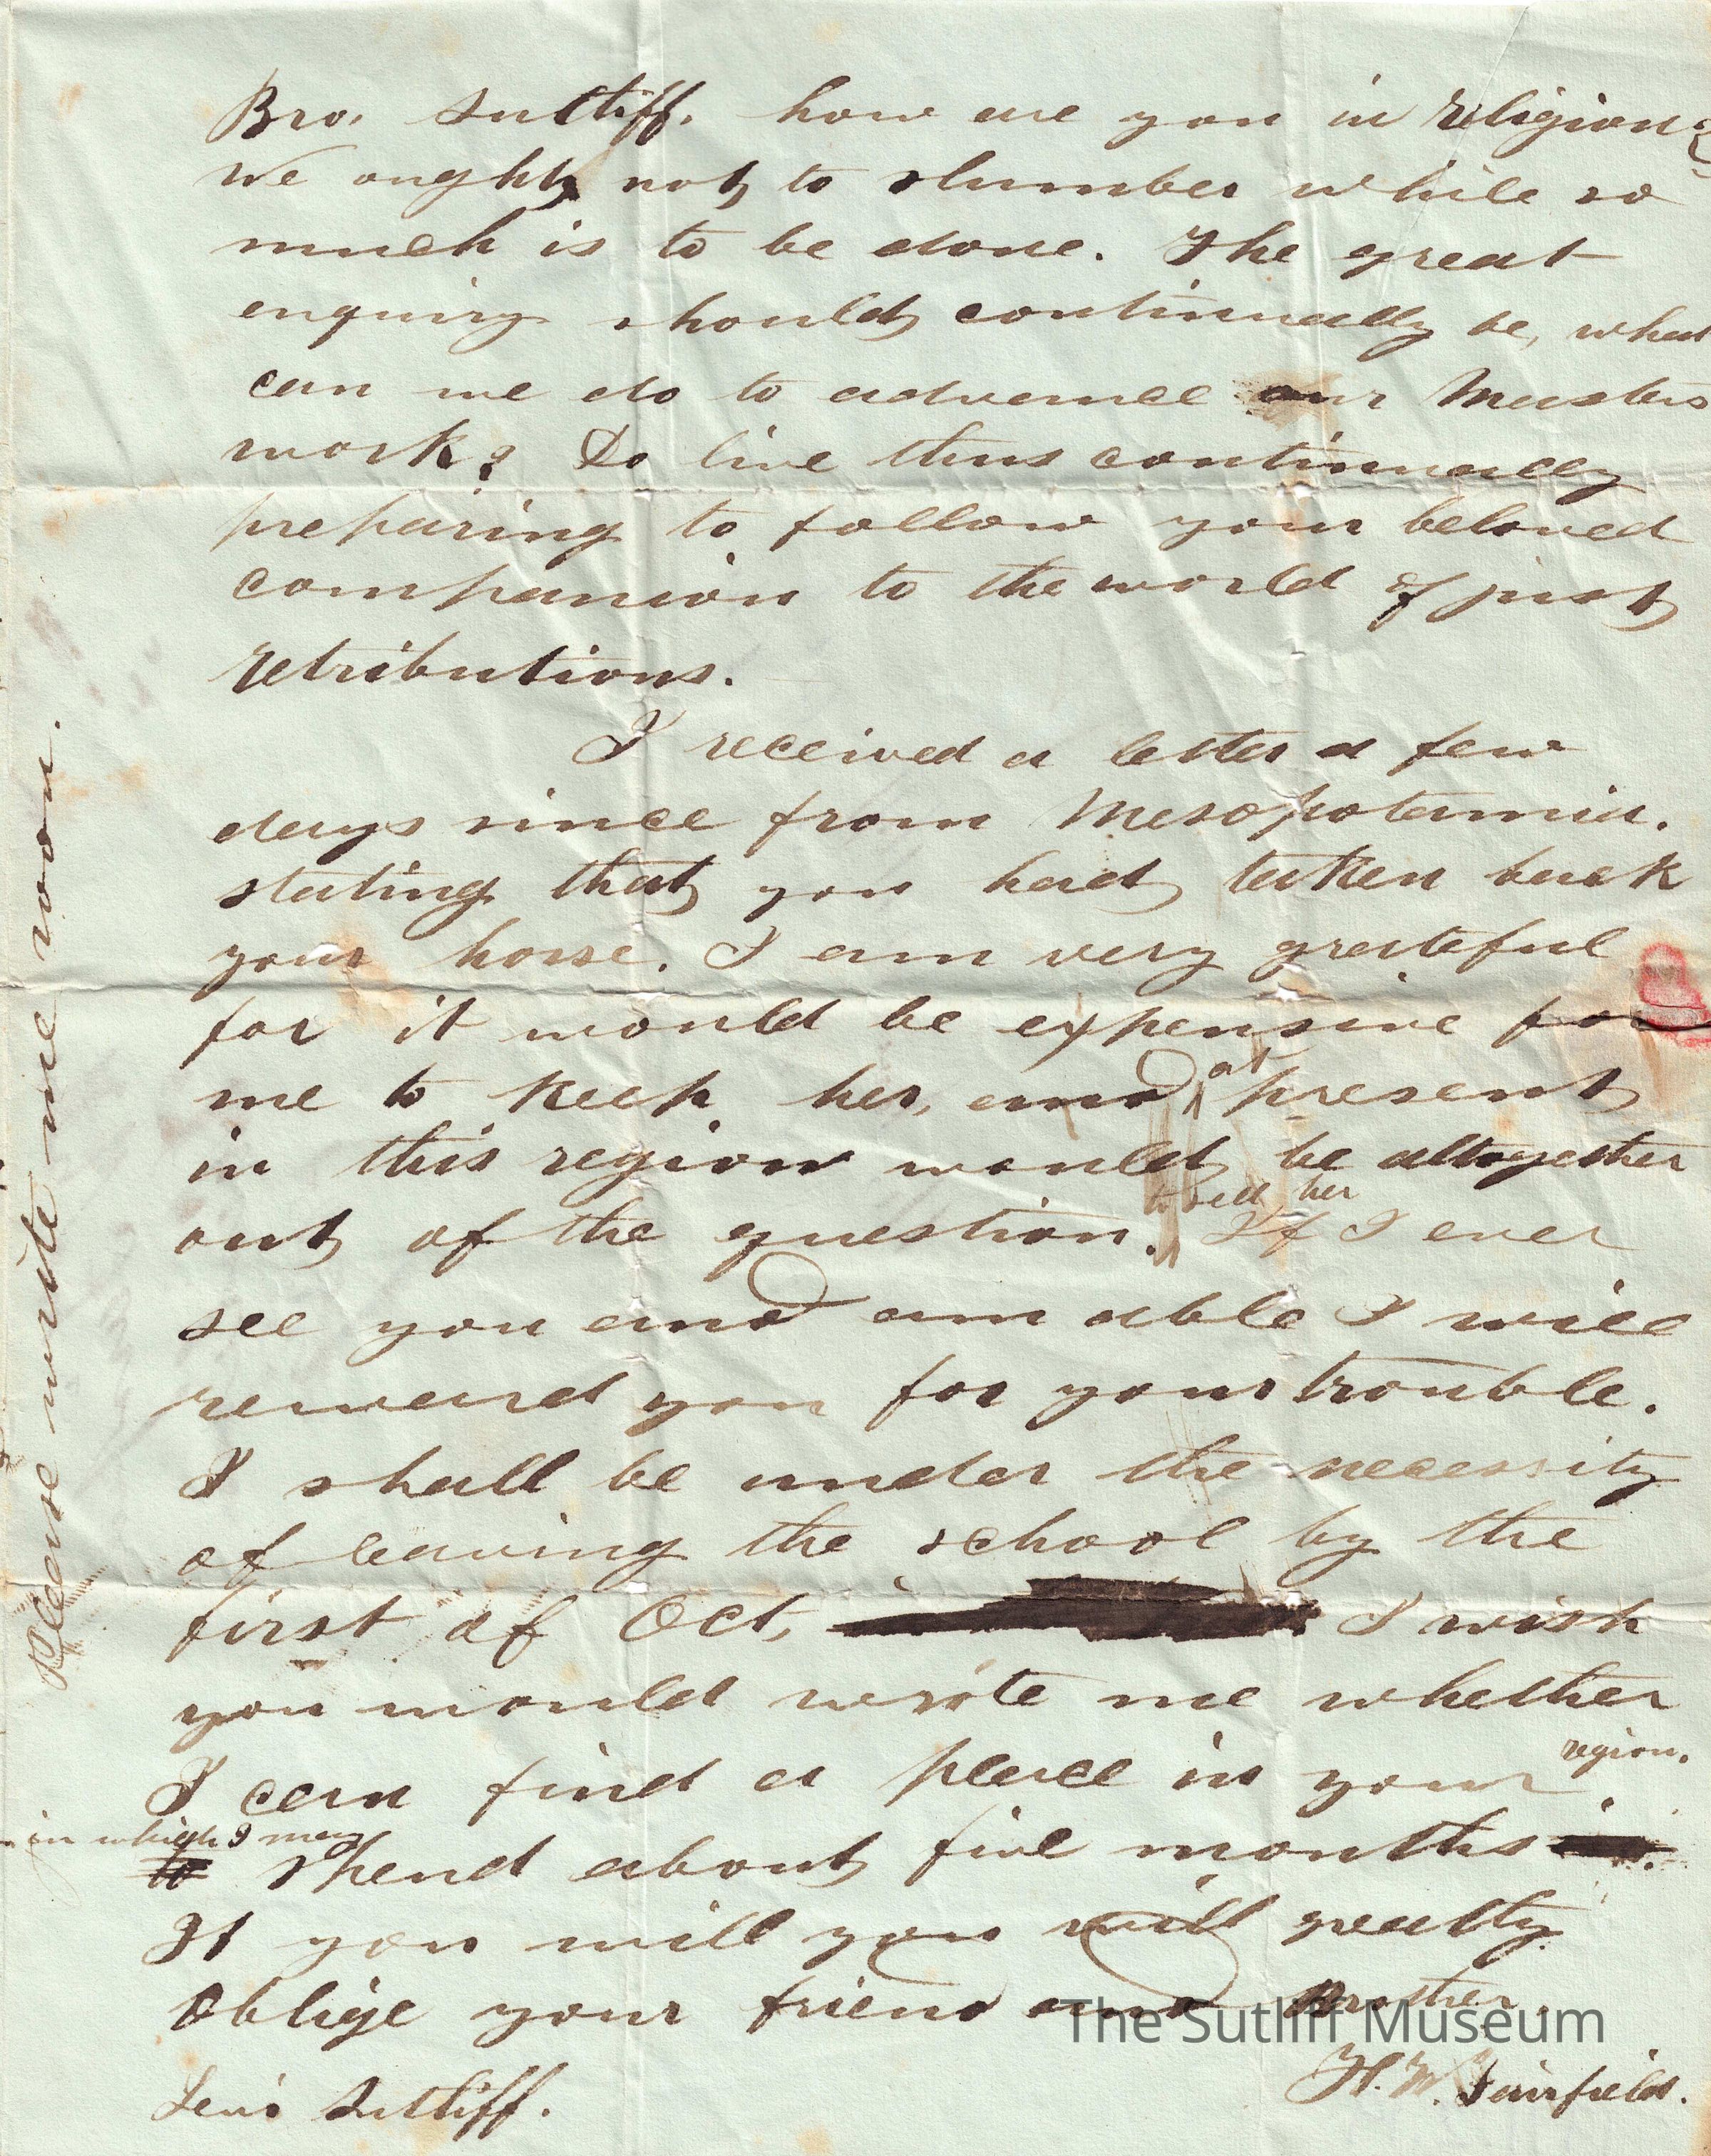 Bro. Sutliff. how are you in religion?
We ought not to slumber while so
much is to be done. The great
enquiry should continually be, what
can we do to advance our Masters
work? Do live thus continually
preparing to follow your beloved
companion to the world of just
retributions.
I received a letter a few
days since from Mesopotamia.
stating that you had taken back
your horse. I am very grateful
for it would be expensive for
me to keep her, and at present
in this region would be altogether
out of the question. to sell her If I ever
see you and am able I will
reward you for your trouble.
I shall be under the necessity
of leaving the school by the
first of Oct, I wish
you would write me whether
I can find a place in your region.
in which I may
to spend about five months
If you will you will greatly
oblige your friend and Brother.
H. W. Fairfield.
Levi Sutliff.
Please write me soon.
The Sutliff Museum